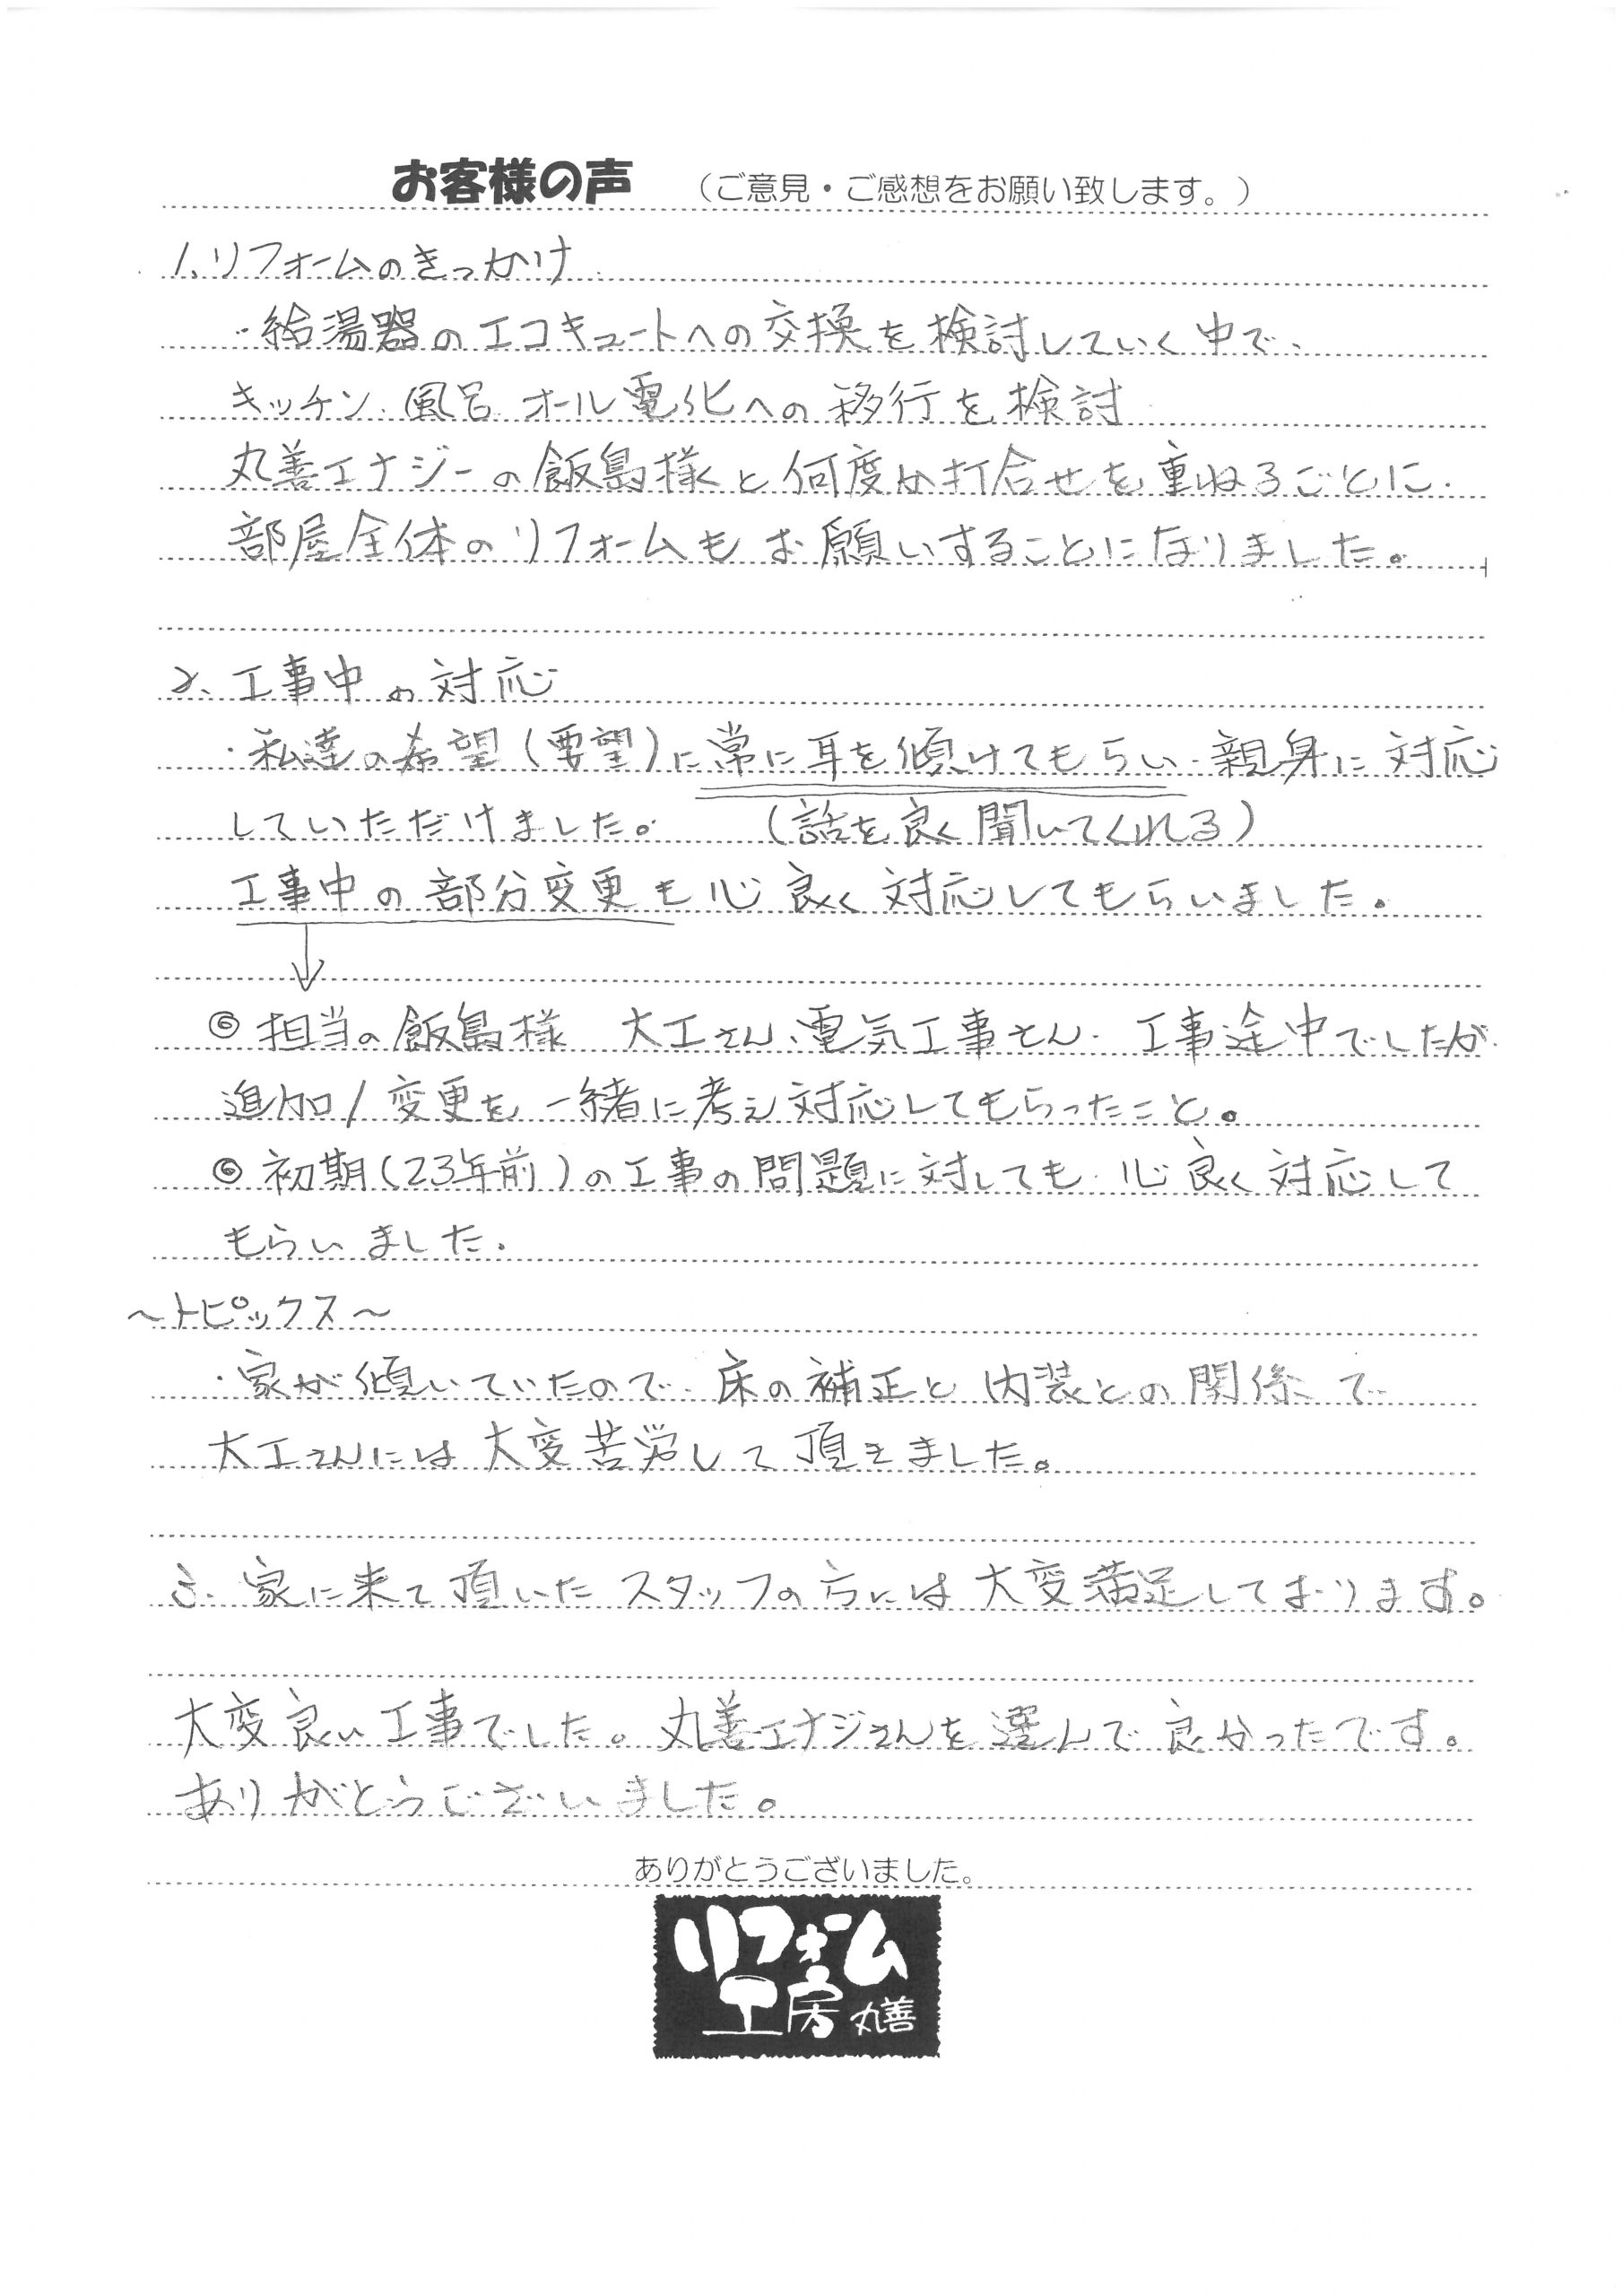 お客様の声 （ご意見・ご感想をお願い致します。）
1、リフォームのきっかけ
・給湯器のエコキュートへの交換を検討していく中で、
キッチン、風呂、オール電化への移行を検討
丸善エナジーの飯島様と何度か打合せを重ねるごとに、
部屋全体のリフォームもお願いすることになりました。
2、工事中の対応
・私達の希望（要望）に常に耳を傾けてもらい、親身に対応
していただけました。 （話を良く聞いてくれる）
工事中の部分変更も心良く対応してもらいました。
↓
◎担当の飯島様 大工さん、電気工事さん、工事途中でしたが、
追加/変更を一緒に考え対応してもらったこと。
◎初期（23年前）の工事の問題に対しても、心良く対応して
もらいました。
〜トピックス〜
・家が傾いていたので、床の補正と内装との関係で
大工さんには大変苦労して頂きました。
3、家に来て頂いたスタッフの方には大変満足しております。
大変良い工事でした。丸善エナジさんを選んで良かったです。
ありがとうございました。
ありがとうございました。
リフォーム
工房 丸善